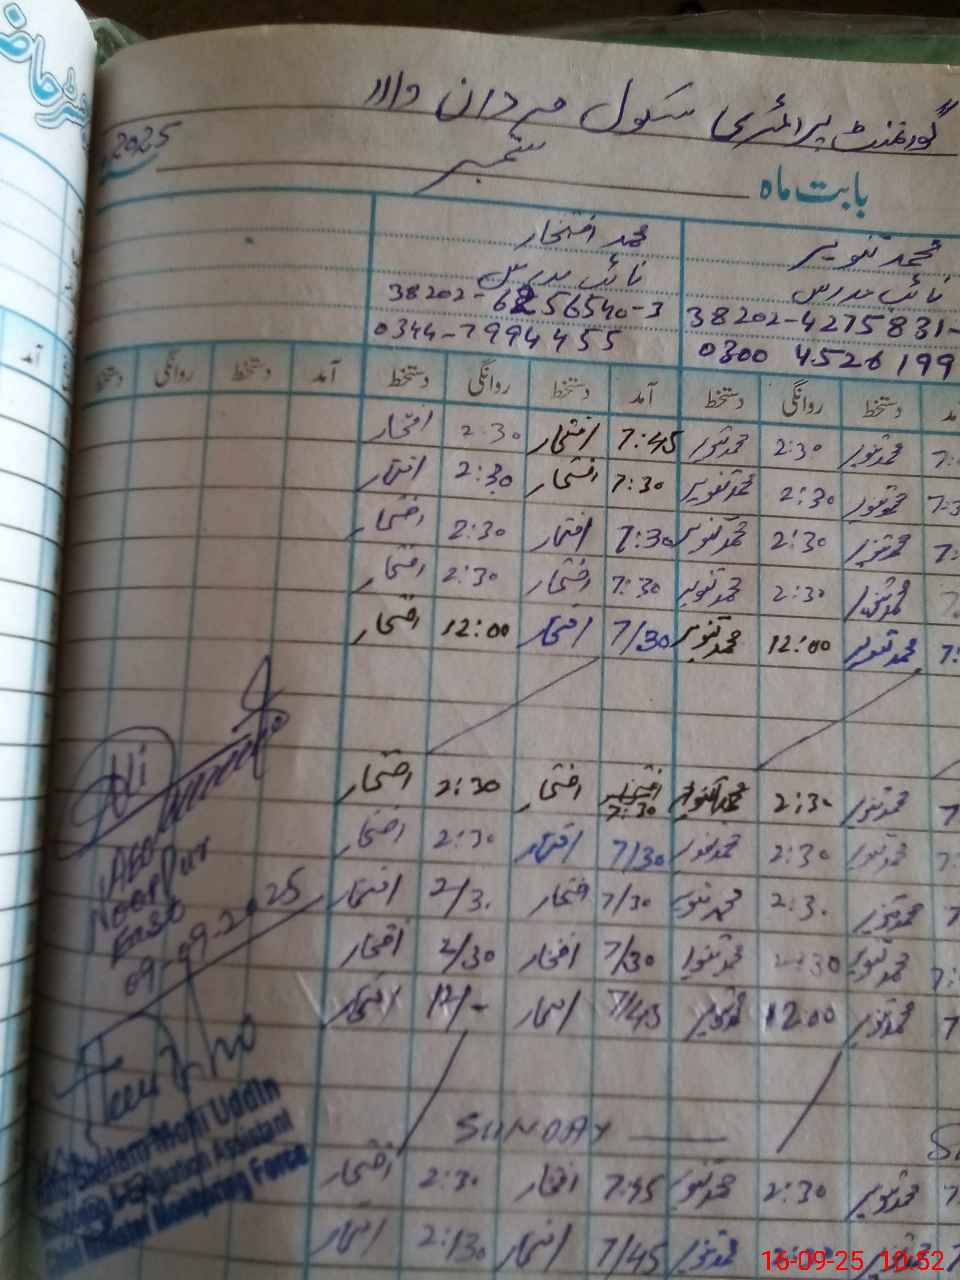 گورنمنٹ پرائمری سکول مردان والا
بابت ماہ ستمبر 2025
محمد تنویر محمد افتخار
نائب مدرس نائب مدرس
38202-4275831- 38202-6256540-3
0300 4526199 0344-7994455
آمد دستخط روانگی دستخط آمد دستخط روانگی دستخط آمد دستخط روانگی دستخط
محمد تنویر 2:30 محمد تنویر 7:45 افتخار 2:30 افتخار
محمد تنویر 2:30 محمد تنویر 7:30 افتخار 2:30 افتخار
محمد تنویر 2:30 محمد تنویر 7:30 افتخار 2:30 افتخار
محمد تنویر 2:30 محمد تنویر 7:30 افتخار 2:30 افتخار
محمد تنویر 12:00 محمد تنویر 7/30 افتخار 12:00 افتخار
محمد تنویر 2:30 محمد تنویر 7:30 افتخار 2:30 افتخار
محمد تنویر 2:30 محمد تنویر 7/30 افتخار 2:30 افتخار
محمد تنویر 2:30 محمد تنویر 7/30 افتخار 2/30 افتخار
محمد تنویر 2:30 محمد تنویر 7/30 افتخار 2/30 افتخار
محمد تنویر 12:00 محمد تنویر 7/45 افتخار 12/- افتخار
SUNDAY
محمد تنویر 2:30 محمد تنویر 7:45 افتخار 2:30 افتخار
محمد تنویر محمد تنویر 7/45 افتخار 2:30 افتخار
AEO
Noorpur
East
09-09-2025
Uddin
Assistant
Monitoring Force
16-09-25 10:52